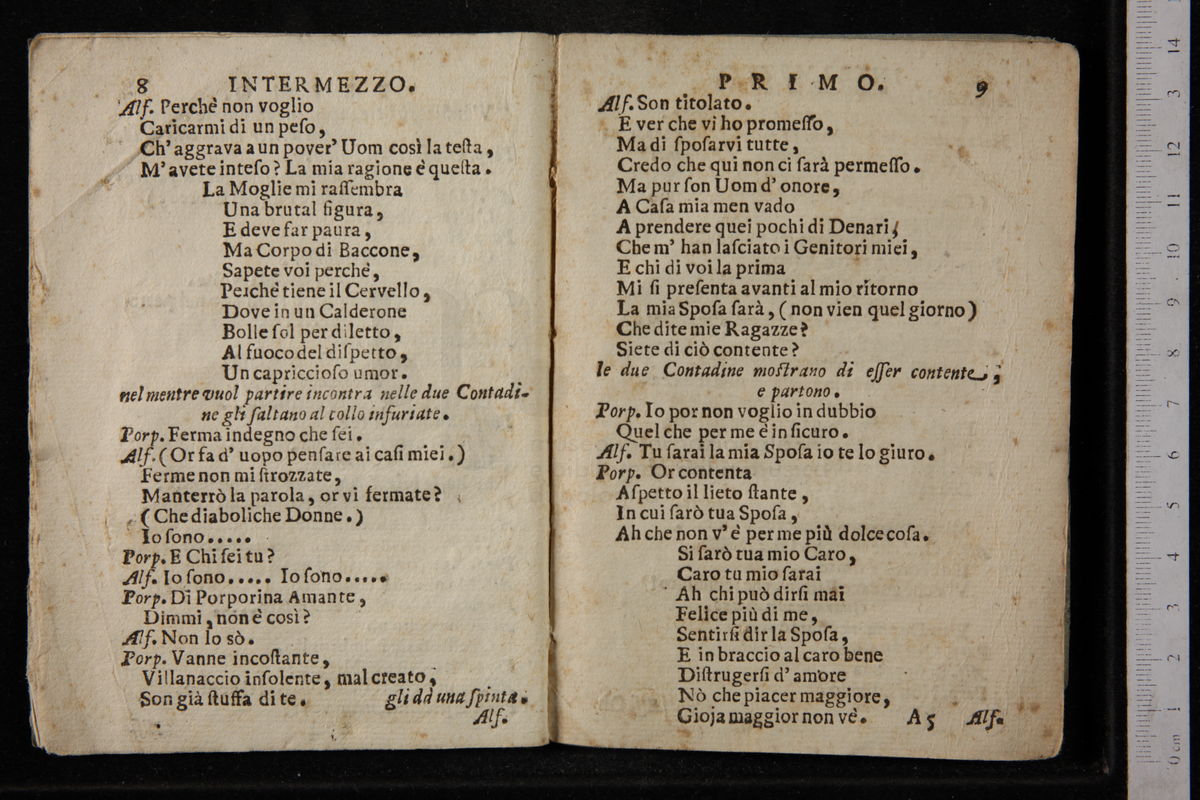 8 INTERMEZZO.
Alf. Perchè non voglio
Caricarmi di un peſo,
Ch' aggrava a un pover' Uom così la teſta,
M' avete inteſo? La mia ragione è queſta.
La Moglie mi raſſembra
Una brutal figura,
E deve far paura,
Ma Corpo di Baccone,
Sapete voi perchè,
Perchè tiene il Cervello,
Dove in un Calderone
Bolle ſol per diletto,
Al fuoco del diſpetto,
Un capriccioſo umor.
nel mentre vuol partire incontra nelle due Contadi-
ne gli ſaltano al collo infuriate.
Porp. Ferma indegno che ſei.
Alf. (Or fa d' uopo penſare ai caſi miei.)
Ferme non mi ſtrozzate,
Manterrò la parola, or vi fermate?
(Che diaboliche Donne.)
Io ſono.....
Porp. E Chi ſei tu?
Alf. Io ſono..... Io ſono.....
Porp. Di Porporina Amante,
Dimmi, non è così?
Alf. Non lo sò.
Porp. Vanne incoſtante,
Villanaccio inſolente, mal creato,
Son già ſtuffa di te. gli dà una ſpinta.
Alf.
PRIMO. 9
Alf. Son titolato.
E ver che vi ho promeſſo,
Ma di ſpoſarvi tutte,
Credo che qui non ci ſarà permeſſo.
Ma pur ſon Uom d' onore,
A Caſa mia men vado
A prendere quei pochi di Denari,
Che m' han laſciato i Genitori miei,
E chi di voi la prima
Mi ſi preſenta avanti al mio ritorno
La mia Spoſa ſarà, (non vien quel giorno)
Che dite mie Ragazze?
Siete di ciò contente?
le due Contadine moſtrano di eſſer contente,
e partono.
Porp. Io por non voglio in dubbio
Quel che per me è in ſicuro.
Alf. Tu ſarai la mia Spoſa io te lo giuro.
Porp. Or contenta
Aſpetto il lieto ſtante,
In cui ſarò tua Spoſa,
Ah che non v' è per me più dolce coſa.
Si ſarò tua mio Caro,
Caro tu mio ſarai
Ah chi può dirſi mai
Felice più di me,
Sentirſi dir la Spoſa,
E in braccio al caro bene
Diſtrugerſi d' amore
Nò che piacer maggiore,
Gioja maggior non vè. A5 Alf.
0 cm 1 2 3 4 5 6 7 8 9 10 11 12 3 14